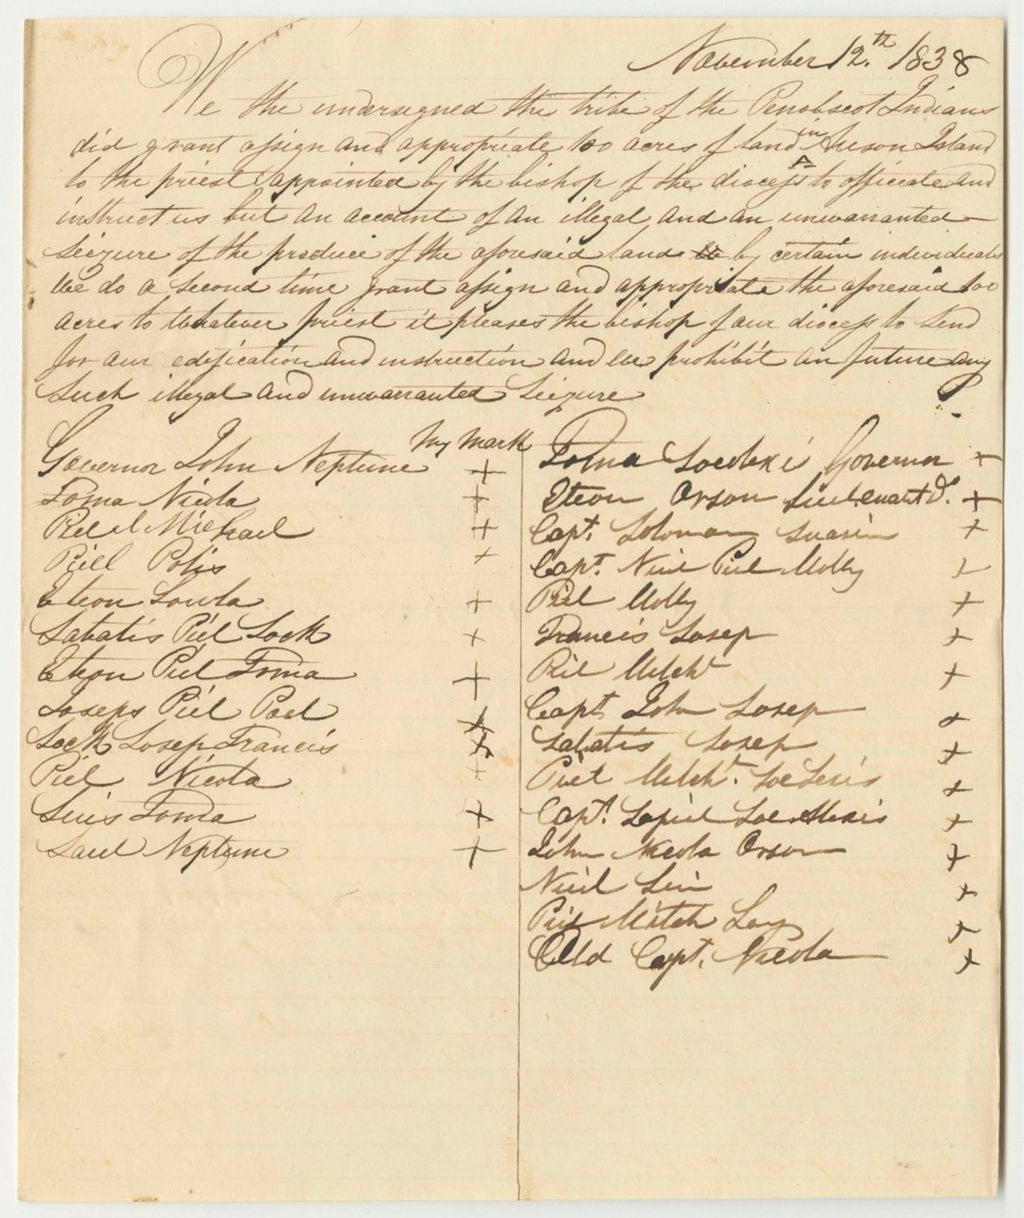 November 12.th 1838
We the undersigned the tribe of the Penobscot Indians
did grant assign and appropriate 100 acres of land in Orson Island
to the priest appointed by the bishop of the diocess to officiate and
instruct us but on account of an illegal and an unwarranted
seizure of the produce of the aforesaid land by certain individuals
We do a second time grant assign and appropriate the aforesaid 100
acres to whatever priest it pleases the bishop of our diocess to send
for our edification and instruction and we prohibit in future any
such illegal and unwarranted seizure
My mark
Governor John Neptune +
Toma Nicola +
Piel Michael +
Piell Polis +
Eteon Lowla +
Sabatis Piel Sock +
Eteon Piel Toma +
Joseph Piel Pool X
Sock Josep Francis X
Piel Nicola +
Luis Toma +
Saul Neptune +
Toma Governor +
Eteon Orson Lieutenant do. +
Capt. Soloman Suasin +
Capt. Niel Piel Molly +
Piel Molly +
Francis Josep +
Piel Mitch. +
Capt John Josep +
Sabatis Josep +
Piel Mitch. +
Capt. Joe Alexis +
John Nicola Orson +
Niel +
Piel Mitch +
Old Capt. Nicola +